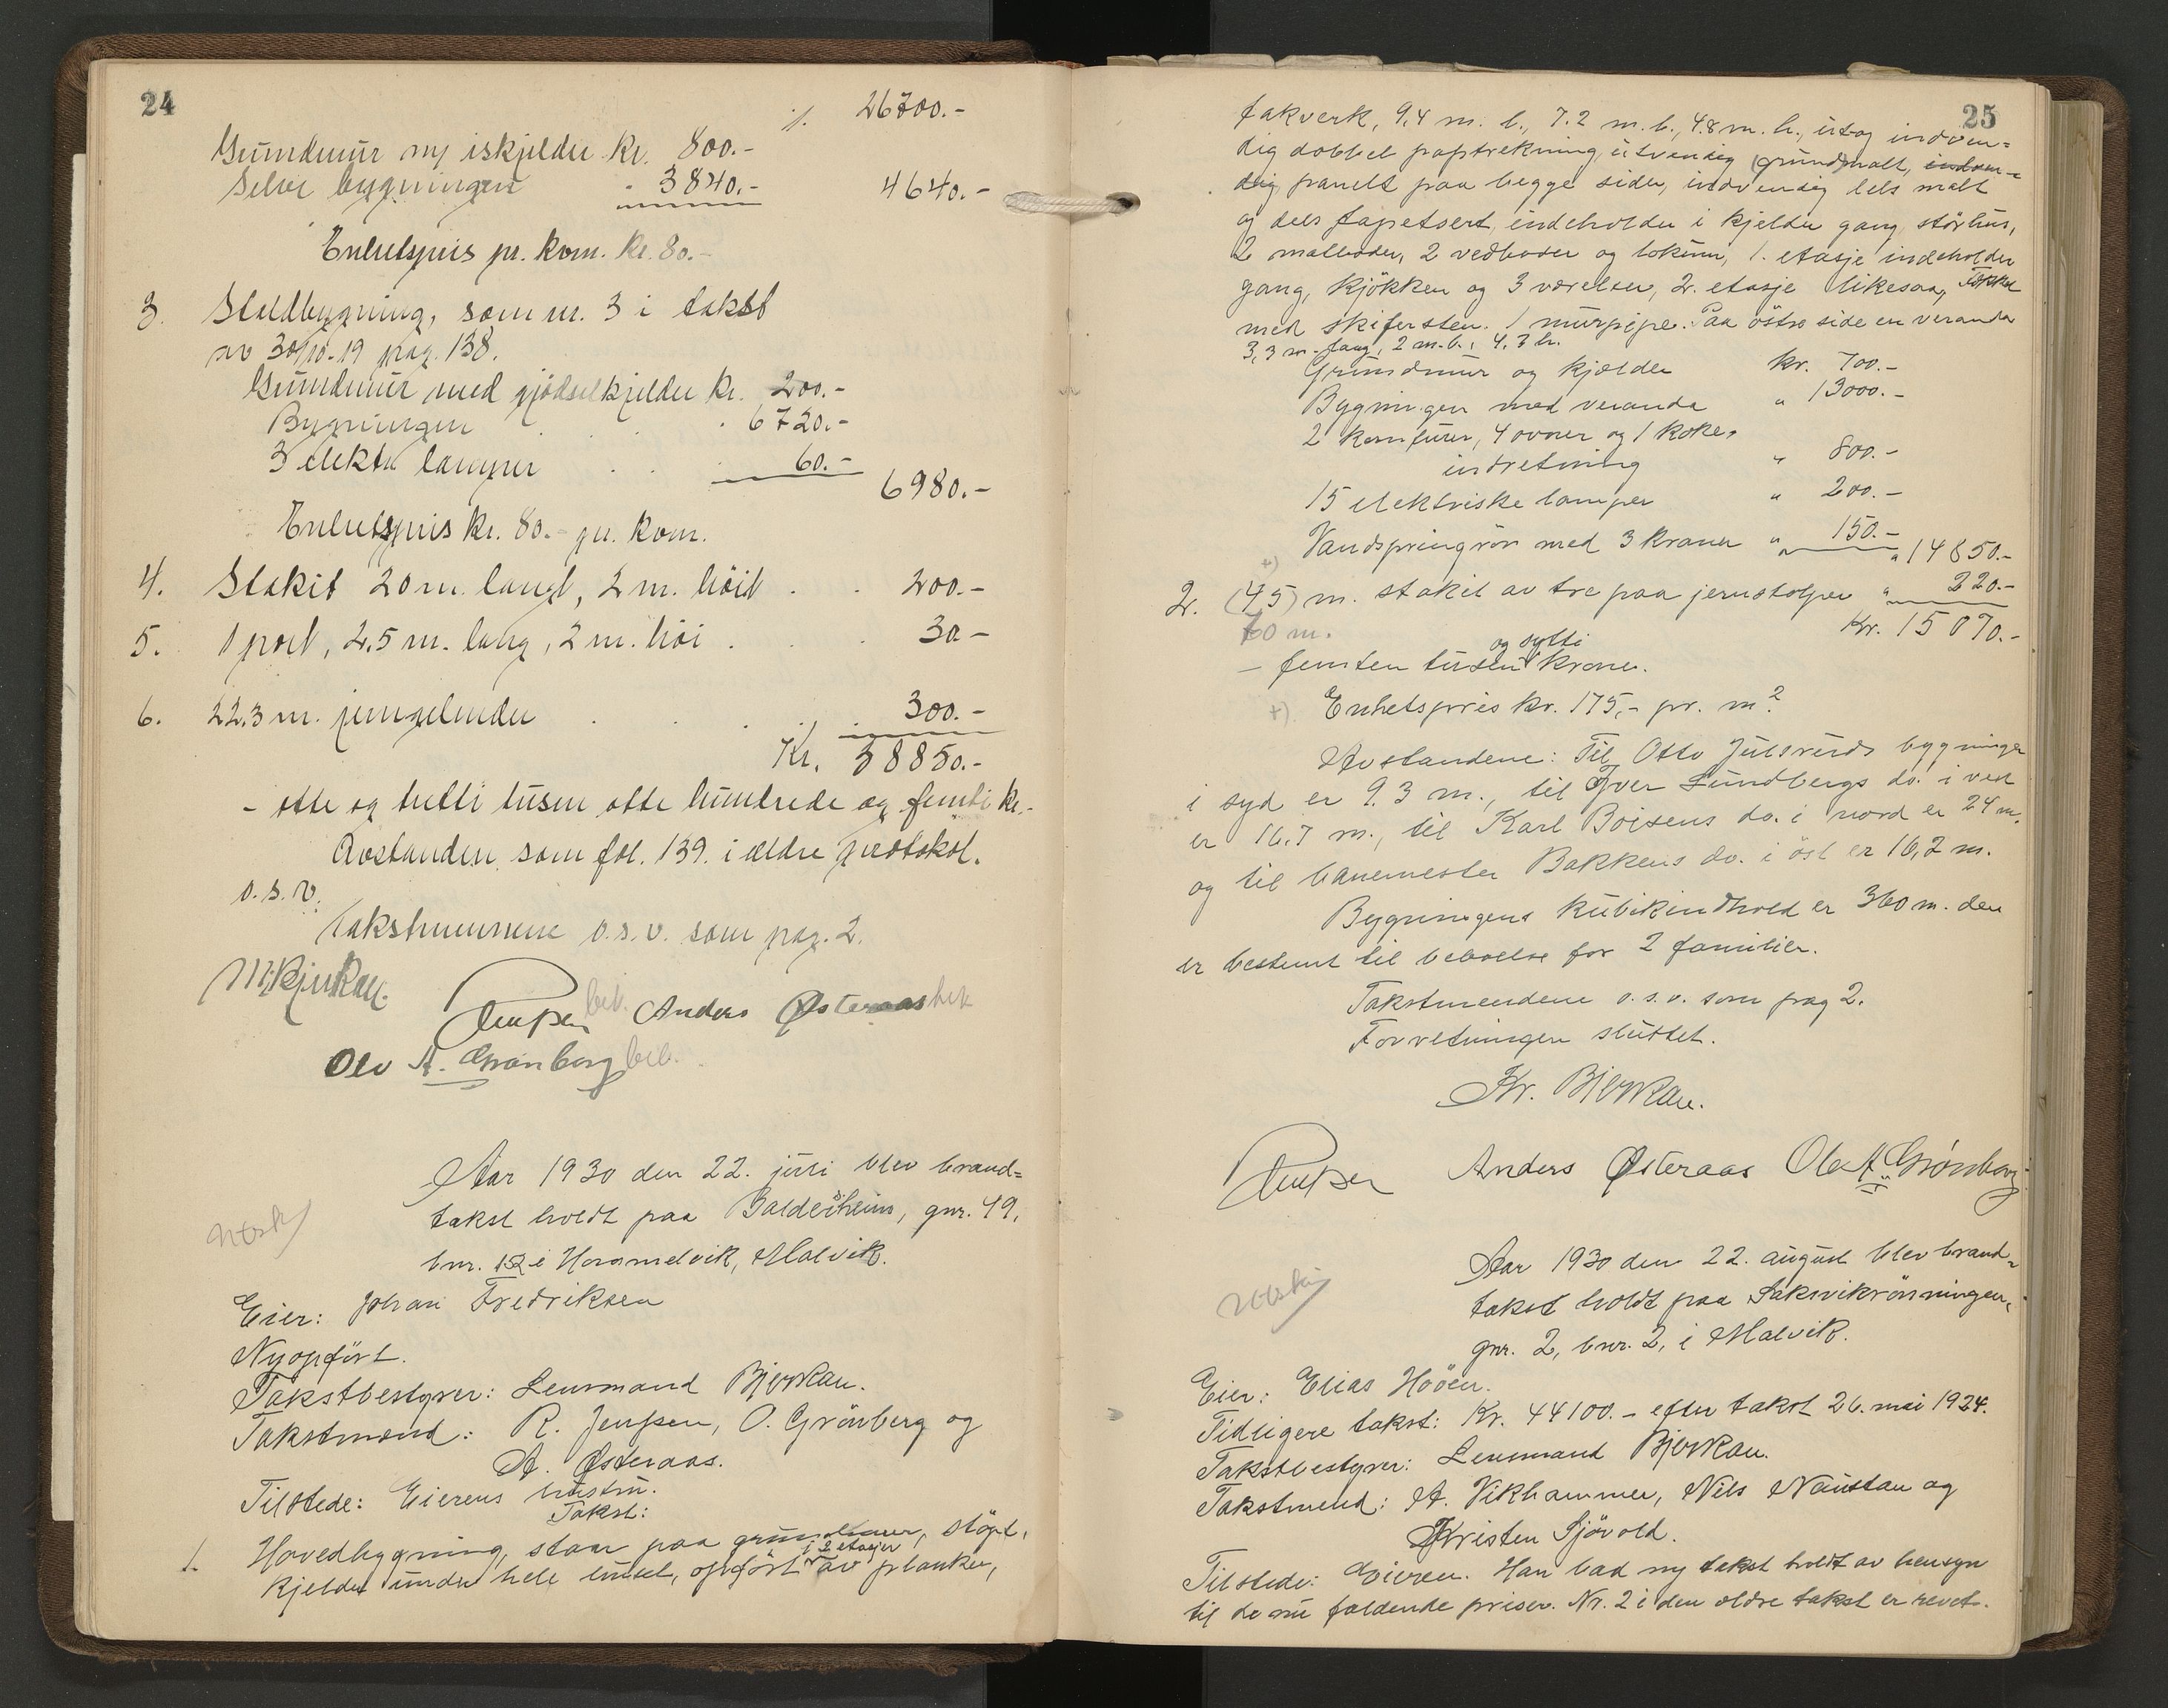 24
%. 26700.-
Grundmur m/ iskjelder kr. 800.-
Selve bygningen " 3840.- 4640.-
Enhetspris pr. kbm. kr. 80.-
3. Staldbygning, som nr. 3 i takst
av 30/10-19 pag. 138.
Grundmur med gjödselkjelder kr. 200.-
Bygningen . . . . 6720.-
3 elektr lamper . . . 60.- 6980.-
Enhetspris kr. 80.- pr. kbm.
4. Stakit 20 m. langt, 2 m. höit . . 200.-
5. 1 port, 2,5 m. lang, 2 m. höi . . 30.-
6. 22.3 m. jerngelender . . . . 300.-
Kr. 38850.-
- otte og tretti tusen otte hundrede og femti kr.-
Avstanden som fol. 139. i ældre protokol.
o.s.v.
Takstmennene o.s.v. som pag. 2.
Jenssen Anders Østeraas
Ole A. Grönberg
Aar 1930 den 22. juli blev brand=
takst holdt paa Baldersheim, gnr. 49,
bnr. 152 i Hommelvik, Malvik.
Eier: Johan Fredriksen
Nyopfört.
Takstbestyrer: Lensmand Bjerkan.
Takstmænd: R. Jenssen, O. Grönberg og
A. Østeraas.
Tilstede: Eierens hustru.
Takst:
1. Hovedbygning, staar paa grundmur, stöpt,
i 2 etasjer
kjelder under hele huset, opfört av planker,
25
fakverk, 9.4 m. l., 7.2 m. b., 4.8 m. h., ut og indven=
dig dobbel paptrekning, utvendig (grund)malt, indven=
dig panelt paa begge sider, indvendig dels malt
og dels tapetsert, indeholder i kjelder gang, störhus,
2 matboder, 2 vedboder og lokum, 1. etasje indeholder
gang, kjökken og 3 værelser, 2. etasje likesaa, Tækket
med skifersten. 1 murpipe. Paa östre side en veranda
3,3 m. lang, 2 m. b., 4,3 h.
Grundmur og kjælder kr. 700.-
Bygningen med veranda " 13000.-
2 komfurer, 4 ovner og 1 koke=
indretning " 800.-
15 elektriske lamper " 200.-
Vandspringrör med 3 kraner " 150.- " 14850.-
+)
2. (45) m. stakit av tre paa jernstolper " 220.-
60 m. Kr. 15070.-
og sytti
- femten tusen kroner.
+) Enhetspris kr. 175,- pr. m²
Avstandene: Til Otto Julsruds bygninger
i syd er 9.3 m., til Iver Lundbergs do. i vest
er 16.7 m., til Karl Boisens do. i nord er 24 m.
og til banemester Bakkens do. i öst er 16,2 m.
Bygningens kubikindhold er 360 m. den
er bestemt til beboelse for 2 familier.
Takstmendene o.s.v. som pag 2.
Forretningen sluttet.
Kr. Bjerkan.
Jenssen Anders Østeraas Ole A. Grönberg
Aar 1930 den 22. august blev brand=
takst holdt paa Saksvikrönningen,
gnr. 2, bnr. 2, i Malvik.
Eier: Elias Hööen.
Tidligere takst: Kr. 44100.- efter takst 26. mai 1924.
Takstbestyrer: Lensmand Bjerkan.
Takstmend: A. Vikhammer, Nils Naustan og
Kristen Sjövold.
Tilstede: Eieren. Han bad ny takst holdt av hensyn
til de nu faldende priser. Nr. 2 i den ældre takst er revet.